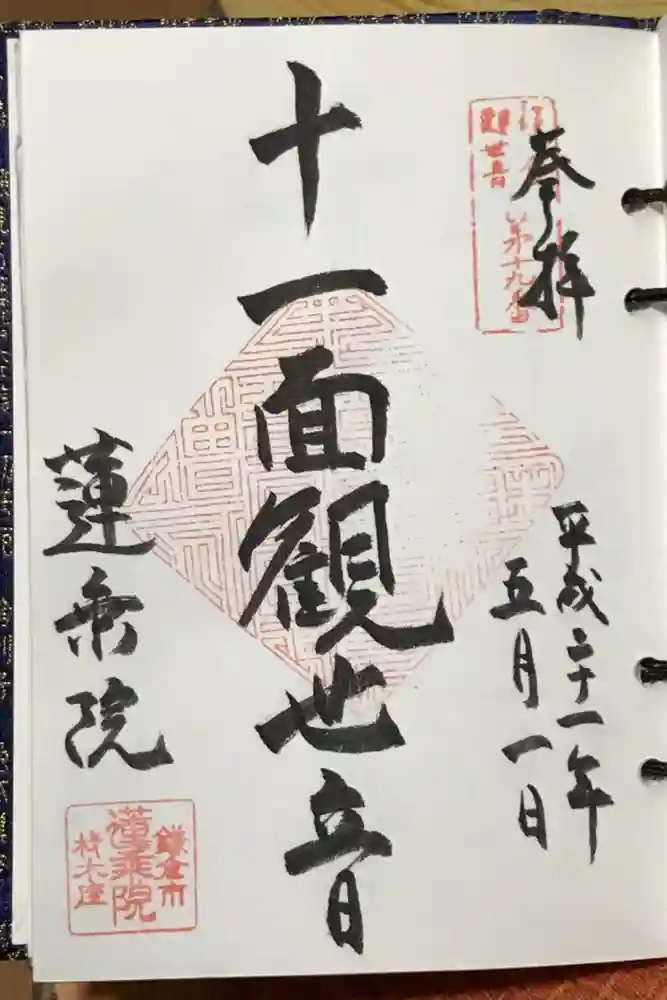 奉拝
観世音
第十九番
平成二十一年
五月一日
十一面観世音
蓮乗院
鎌倉市
蓮乗院
材木座